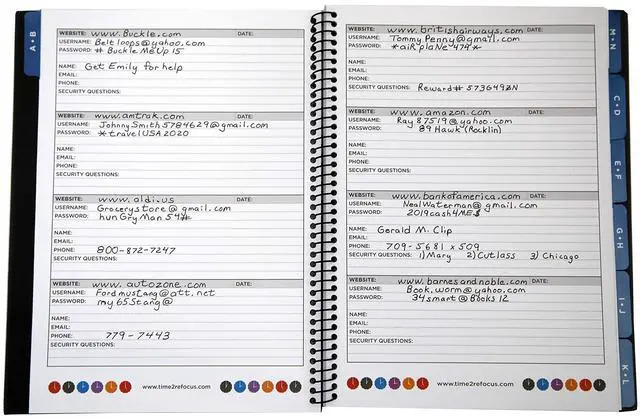 A•B
WEBSITE: www.Buckle.com DATE:
USERNAME: Beltloops@yahoo.com
PASSWORD: # BuckleMeUp15
NAME: Get Emily for help
EMAIL:
PHONE:
SECURITY QUESTIONS:
WEBSITE: www.amtrak.com DATE:
USERNAME: JohnnySmith5784629@gmail.com
PASSWORD: *travelUSA2020
NAME:
EMAIL:
PHONE:
SECURITY QUESTIONS:
WEBSITE: www.aldi.us DATE:
USERNAME: Grocerystore@gmail.com
PASSWORD: hunGryMan54#
NAME:
EMAIL:
PHONE: 800-872-7247
SECURITY QUESTIONS:
WEBSITE: www.autozone.com DATE:
USERNAME: Fordmustang@att.net
PASSWORD: my65Stang@
NAME:
EMAIL:
PHONE: 779-7443
SECURITY QUESTIONS:
www.time2refocus.com
WEBSITE: www.britishairways.com DATE:
USERNAME: TommyPenny@gmail.com
PASSWORD: *aiRplaNe474*
NAME:
EMAIL:
PHONE:
SECURITY QUESTIONS: Reward# 5736492N
WEBSITE: www.amazon.com DATE:
USERNAME: Ray87519@yahoo.com
PASSWORD: 89Hawk(Rocklin)
NAME:
EMAIL:
PHONE:
SECURITY QUESTIONS:
WEBSITE: www.bankofamerica.com DATE:
USERNAME: NealWaterman@gmail.com
PASSWORD: 2019cash4ME$
NAME: Gerald M. Clip
EMAIL:
PHONE: 709-5681 x509
SECURITY QUESTIONS: 1) Mary 2) Cutlass 3) Chicago
WEBSITE: www.barnesandnoble.com DATE:
USERNAME: Book.worm@yahoo.com
PASSWORD: 34smart@Books12
NAME:
EMAIL:
PHONE:
SECURITY QUESTIONS:
www.time2refocus.com
M•N
C•D
E•F
G•H
I•J
K•L